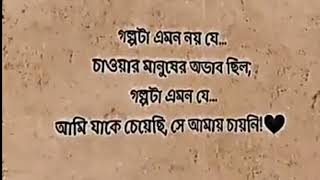 গল্পটা এমন নয় যে...
চাওয়ার মানুষের অভাব ছিল;
গল্পটা এমন যে...
আমি যাকে চেয়েছি, সে আমায় চায়নি!🖤